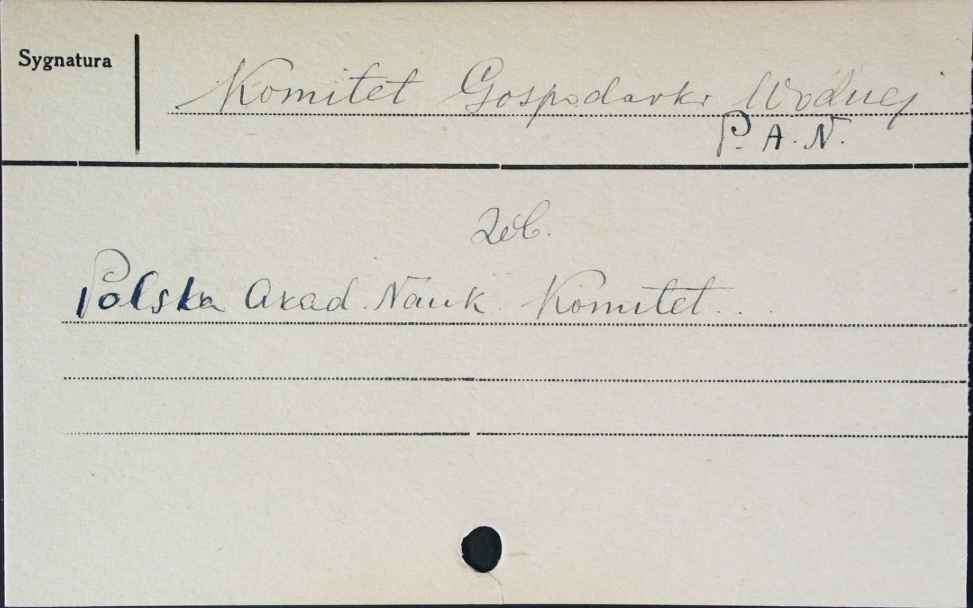 Sygnatura
Komitet Gospodarki Wodnej
P. A. N.
zob.
Polska Akad. Nauk. Komitet...